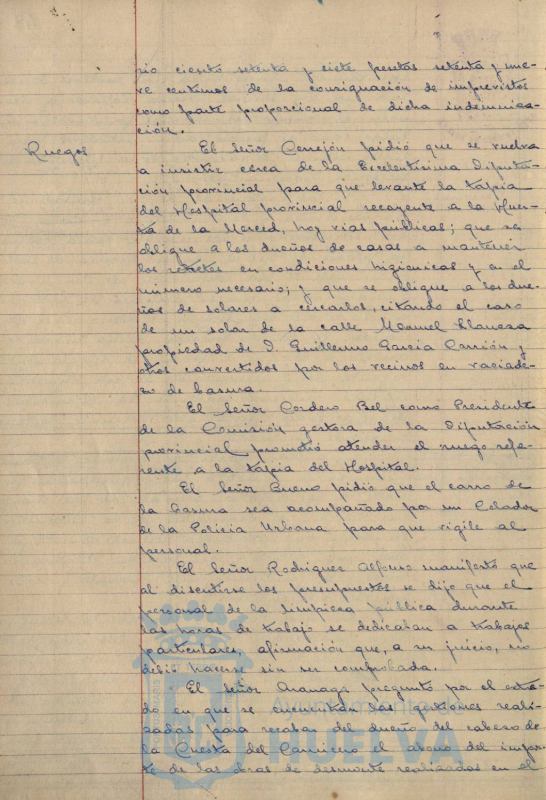 rio ciento setenta y siete pesetas setenta y nue-
ve centimos de la consignación de imprevistos
como parte proporcional de dicha indemniza-
ción.
Ruegos
El Señor Cerrejón pidió que se vuelva
a insistir cerca de la Excelentísima Diputa-
ción provincial para que levante la tapia
del Hospital provincial recayente a la Huer-
ta de la Merced, hoy vías públicas; que se
obligue a los dueños de casas a mantener
los retretes en condiciones higienicas y en el
número necesario; y que se obligue a los due-
ños de solares a cercarlos, citando el caso
de un solar de la calle Manuel
propiedad de D. Guillermo García Carrión y
otros convertidos por los vecinos en vaciade-
ro de basura.
El Señor Cordero Bel como Presidente
de la Comisión gestora de la Diputación
provincial prometió atender el ruego refe-
rente a la tapia del Hospital.
El Señor Bueno pidió que el carro de
la basura sea acompañado por un Celador
de la Policia Urbana para que vigile al
personal.
El Señor Rodriguez Alfonso manifestó que
al discutirse los presupuestos se dijo que el
personal de la limpieza pública durante
las horas de trabajo se dedicaban a trabajos
particulares, afirmación que, a su juicio, no
debió hacerse sin ser comprobada.
El Señor pregunto por el esta-
do en que se encuentran las gestiones reali-
zadas para recabar del dueño del cabezo de
la Cuesta del Carnicero el abono del impor-
te de las obras de desmonte realizados en el
Ayuntamiento de
HUELVA